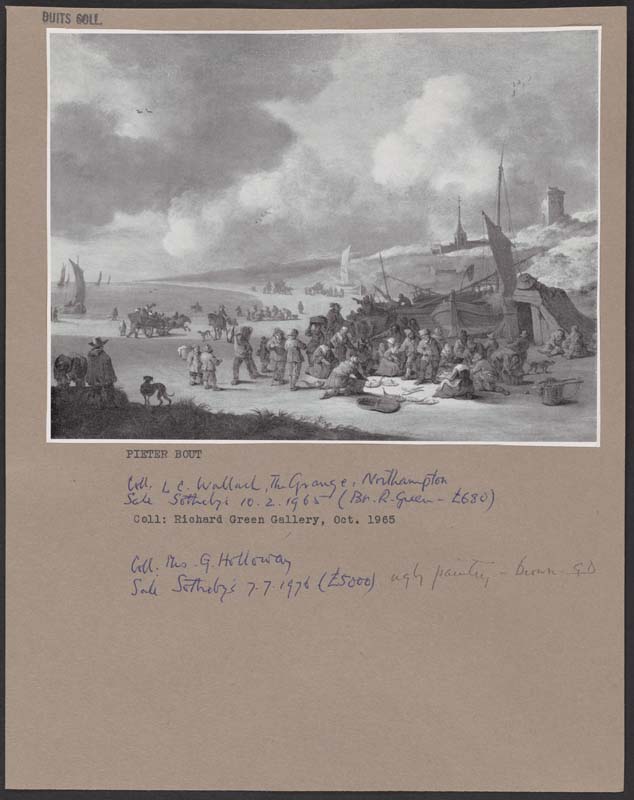 DUITS COLL.
PIETER BOUT
Coll. L C. Wallach, The Grange, Northampton
Sale Sotheby's 10.2.1965 (Bt. R. Green - £680)
Coll: Richard Green Gallery, Oct. 1965
Coll. Mrs. G. Holloway
Sale Sotheby's 7.7.1976 (£5000) ugly painting - brown GD